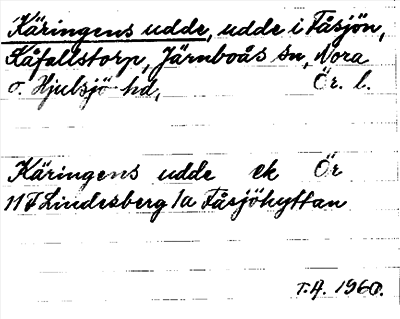 Käringens udde, udde i Fåsjön,
Kåfallstorp, Järnboås sn, Nora
o. Hjulsjö hd, Ör. l.
Käringens udde ek Ör
11F Lindesberg 1a Fåsjöhyttan
T.A. 1960.